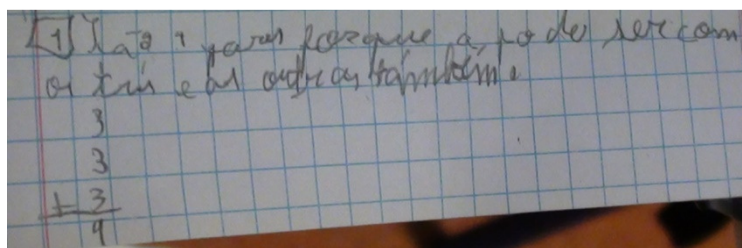 1 porque a pode ser com
os três e as outras também.
3
3
+ 3
9